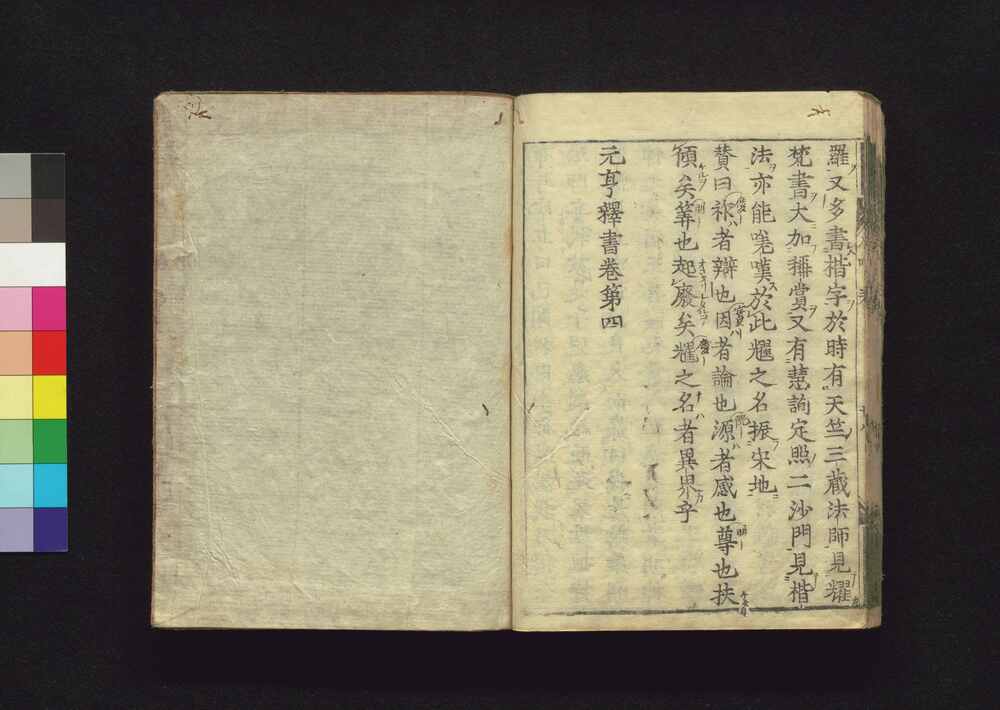 羅又多書楷字於時有天竺三藏法師見耀
梵書大加稱賞又有慧詢定照二沙門見楷
法亦能嗟嘆於此耀之名振宋地
賛曰祚者辯也因者論也源者感也尊也扶
傾矣筭也起廢矣耀之名者異界乎
元亨釋書卷第四